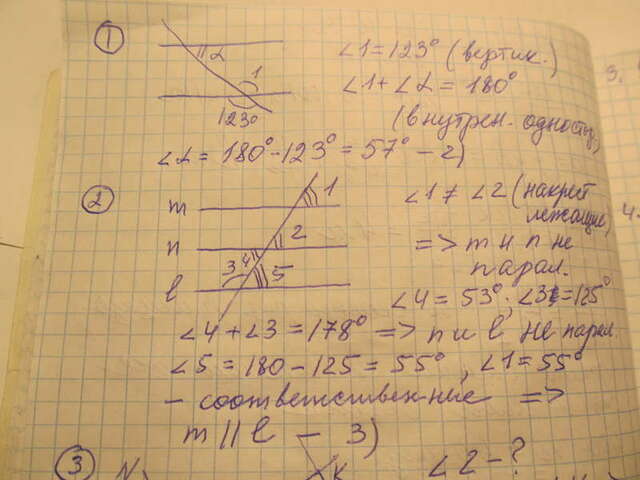 1
∠1 = 123° (вертик.)
∠α
1
∠1 + ∠α = 180°
123°
(внутрен. одност.)
∠α = 180° - 123° = 57° - 2)
2
m
1
∠1 ≠ ∠2 (накрест
лежащие)
n
2
=> m и n не
парал.
3 4
5
l
∠4 = 53°, ∠3 = 125°
∠4 + ∠3 = 178° => n и l не парал
∠5 = 180 - 125 = 55°, ∠1 = 55°
- соответственные =>
m || l - 3)
3
N
K
∠2 - ?
3.
4